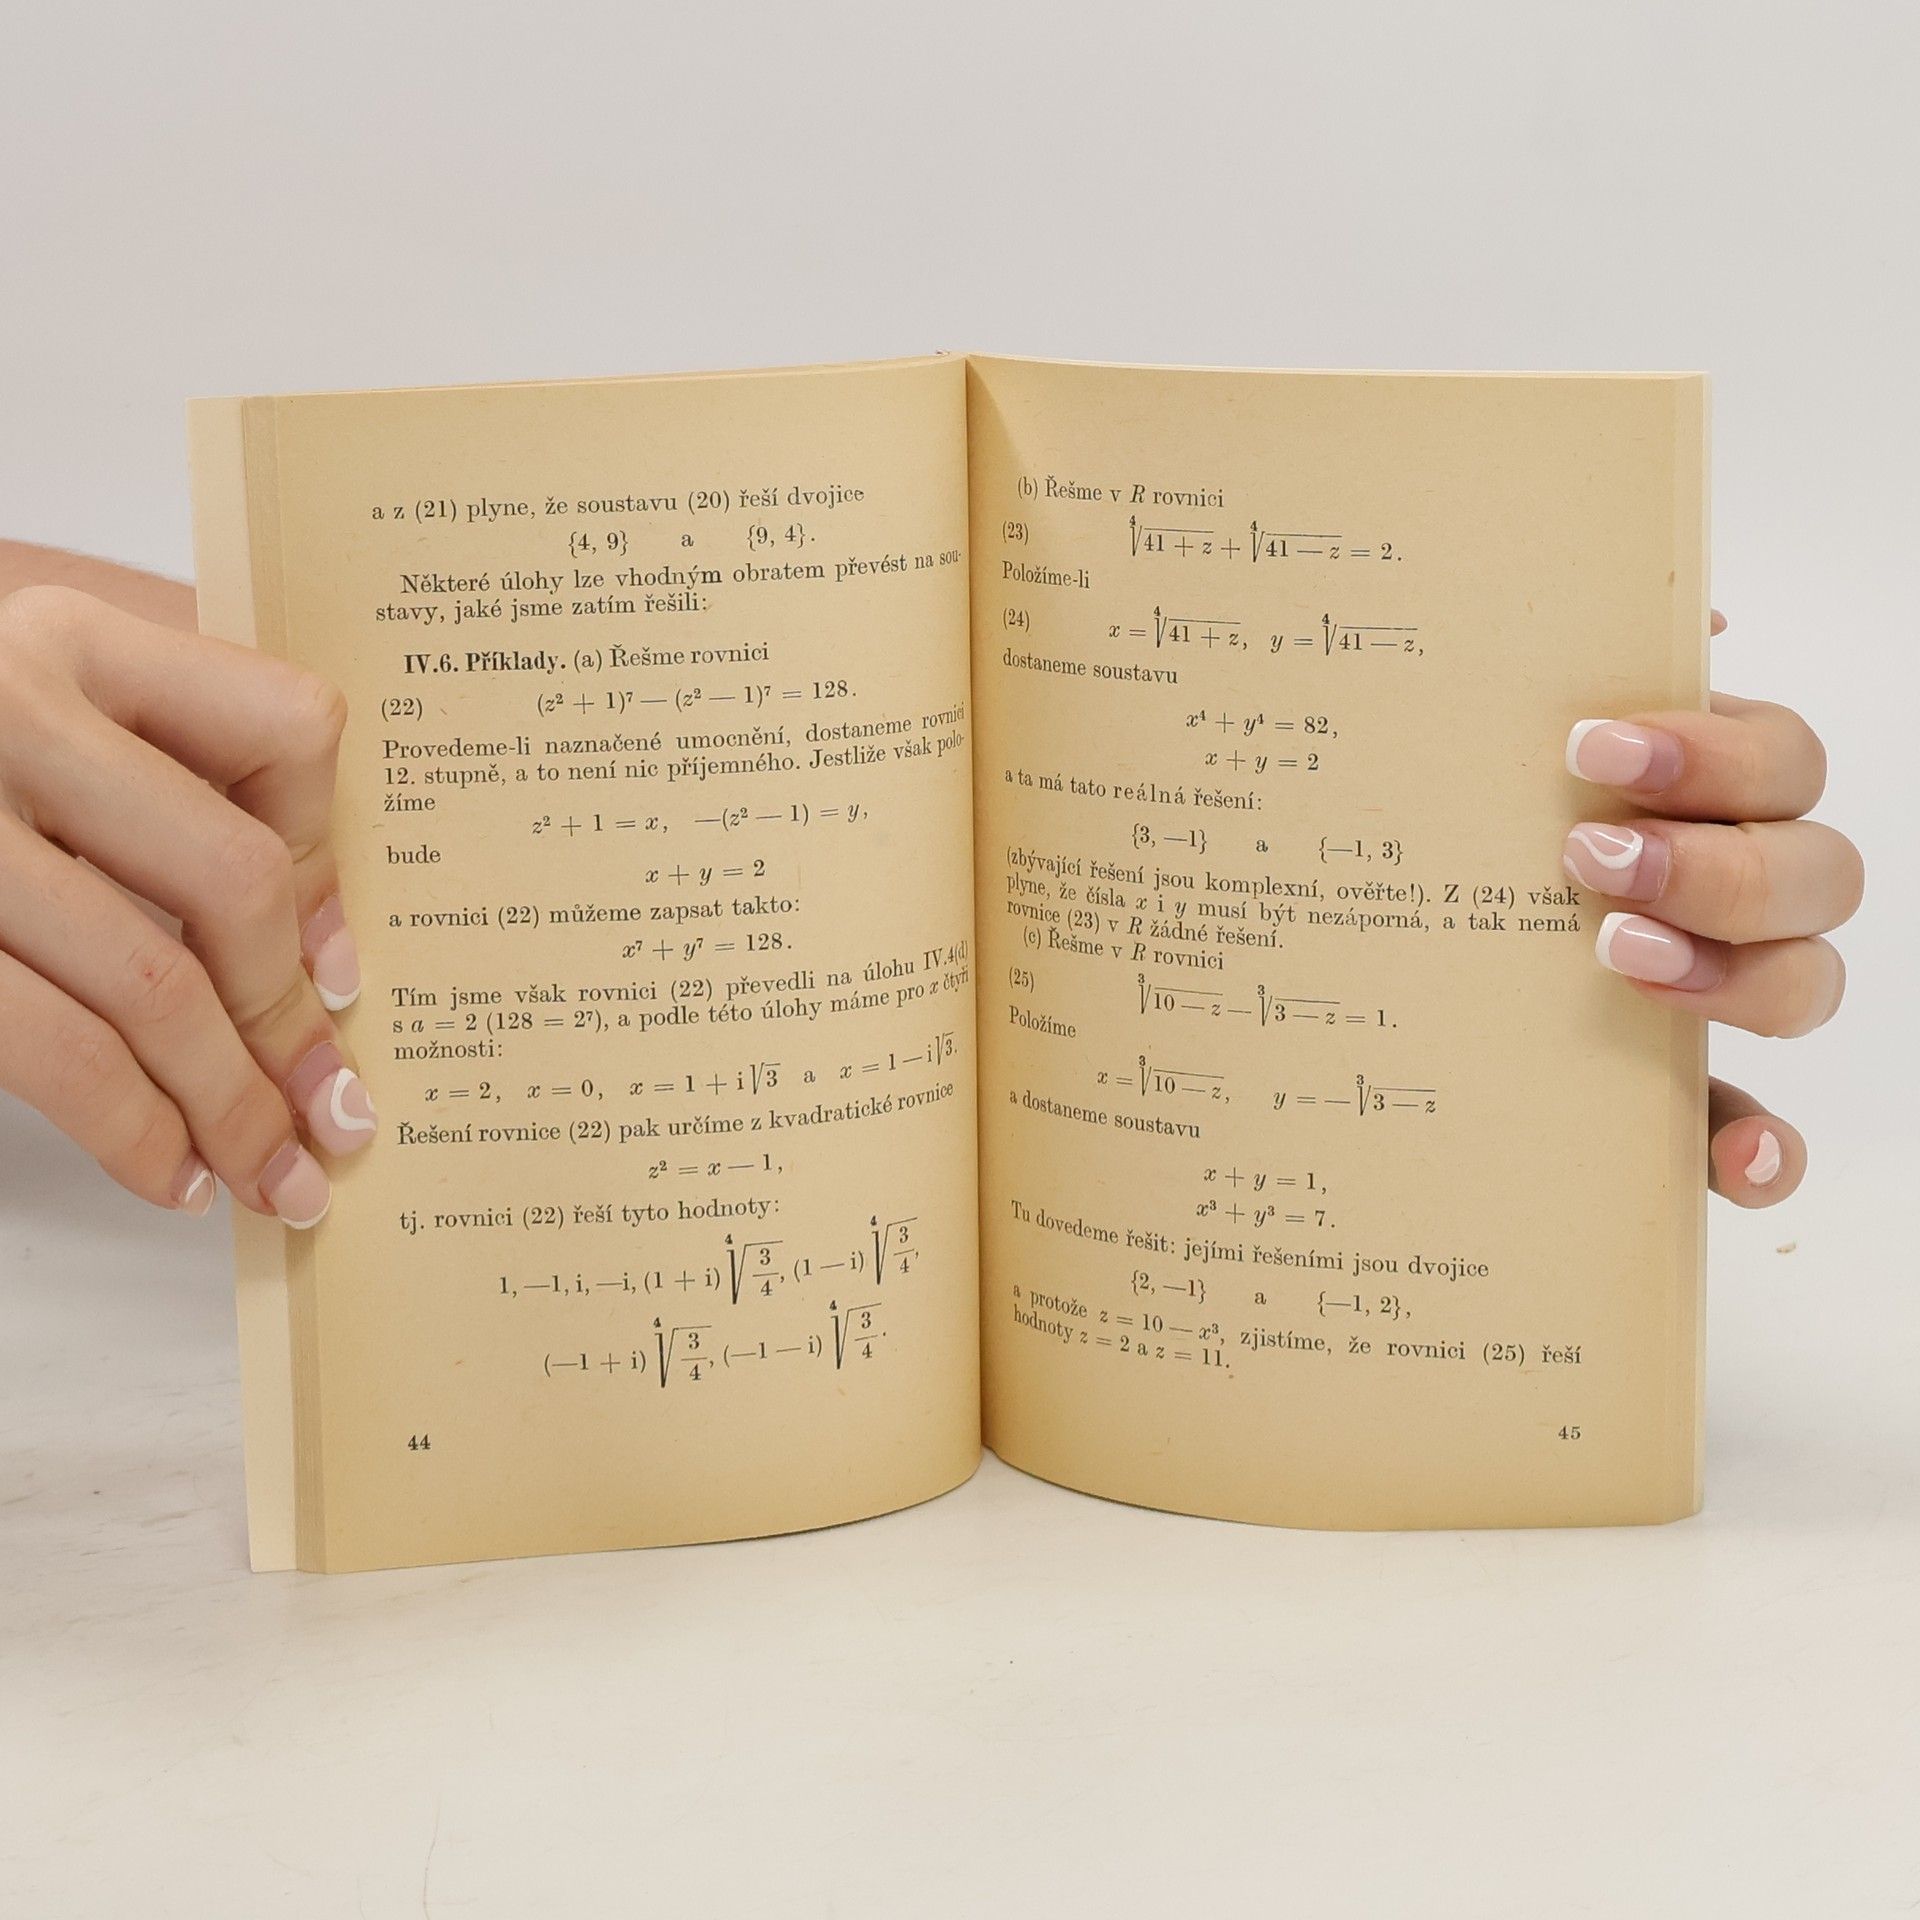 a z (21) plyne, že soustavu (20) řeší dvojice
{4, 9} a {9, 4}.
Některé úlohy lze vhodným obratem převést na sou-
stavy, jaké jsme zatím řešili:
IV.6. Příklady. (a) Řešme rovnici
(22) (z² + 1)⁷ — (z² — 1)⁷ = 128.
Provedeme-li naznačené umocnění, dostaneme rovnici
12. stupně, a to není nic příjemného. Jestliže však polo-
žíme
z² + 1 = x, —(z² — 1) = y,
bude
x + y = 2
a rovnici (22) můžeme zapsat takto:
x⁷ + y⁷ = 128.
Tím jsme však rovnici (22) převedli na úlohu IV.4(d)
s a = 2 (128 = 2⁷), a podle této úlohy máme pro x čtyři
možnosti:
x = 2, x = 0, x = 1 + i√3 a x = 1 — i√3.
Řešení rovnice (22) pak určíme z kvadratické rovnice
z² = x — 1,
tj. rovnici (22) řeší tyto hodnoty:
1, —1, i, —i, (1 + i) ∜(3/4), (1 — i) ∜(3/4),
(—1 + i) ∜(3/4), (—1 — i) ∜(3/4).
44
(b) Řešme v R rovnici
(23) ∜(41 + z) + ∜(41 — z) = 2.
Položíme-li
(24) x = ∜(41 + z), y = ∜(41 — z),
dostaneme soustavu
x⁴ + y⁴ = 82,
x + y = 2
a ta má tato reálná řešení:
{3, —1} a {—1, 3}
(zbývající řešení jsou komplexní, ověřte!). Z (24) však
plyne, že čísla x i y musí být nezáporná, a tak nemá
rovnice (23) v R žádné řešení.
(c) Řešme v R rovnici
(25) ∛(10 — z) — ∛(3 — z) = 1.
Položíme
x = ∛(10 — z), y = — ∛(3 — z)
a dostaneme soustavu
x + y = 1,
x³ + y³ = 7.
Tu dovedeme řešit: jejími řešeními jsou dvojice
{2, —1} a {—1, 2},
a protože z = 10 — x³, zjistíme, že rovnici (25) řeší
hodnoty z = 2 a z = 11.
45